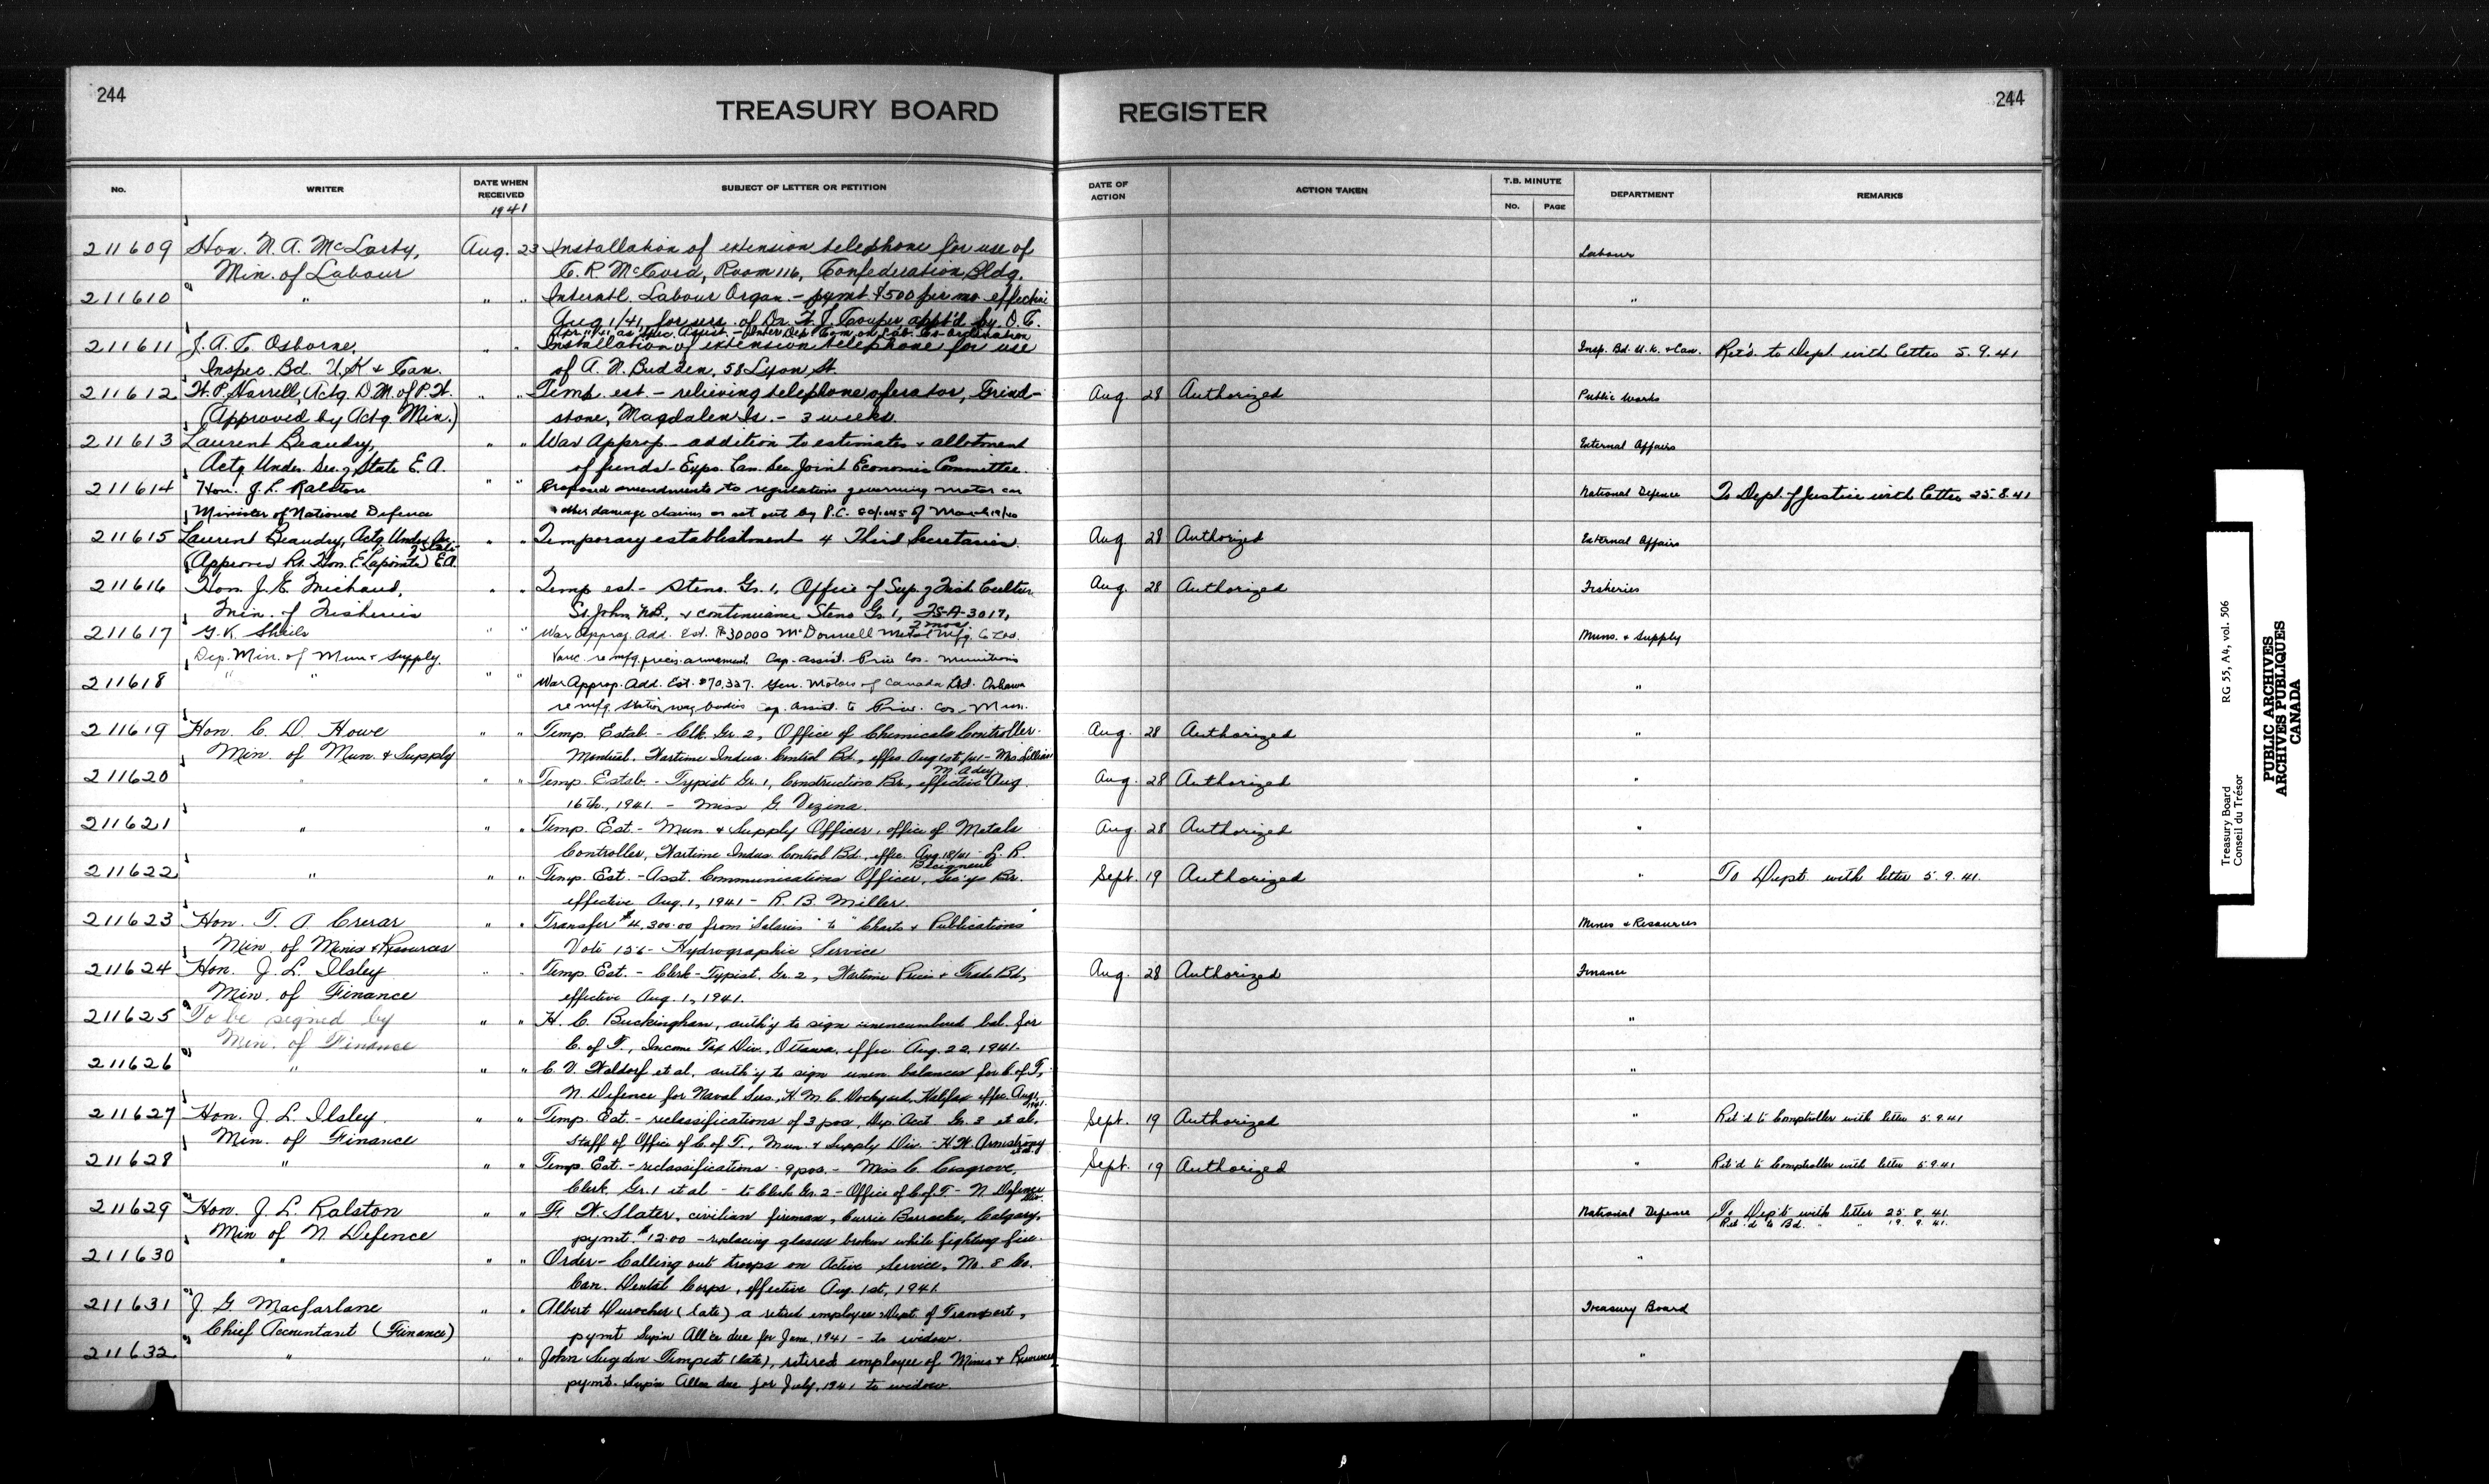 244
TREASURY BOARD REGISTER
244
No. WRITER DATE WHEN RECEIVED SUBJECT OF LETTER OR PETITION DATE OF ACTION ACTION TAKEN T.B. MINUTE DEPARTMENT REMARKS
1941 No. PAGE
211609 Hon. N. A. McLarty, Aug. 23 Installation of extension telephone for use of Labour
Min. of Labour C. R. McCord, Room 116, Confederation Bldg.
211610 " " " Interntl. Labour Organ - pymt $500 per mo effective "
Aug 1/41, for serv. of Dr. W. J. Couper appt'd by O.C.
Apr. 1/41 as Spec. Assist. - Inter Dep. Com. on Lab. Co-ordination
211611 J. A. C. Osborne, " " Installation of extension telephone for use Insp. Bd. U.K. & Can. Ret'd. to Dept with letter 5.9.41
Inspec. Bd. U.K & Can. of A. N. Budden, 58 Lyon St.
211612 H. P. Harrell, Actg D.M. of P.W. " " Temp est - relieving telephone operator, Grind- Aug. 28 Authorized Public Works
(Approved by Actg Min.) stone, Magdalen Is. - 3 weeks
211613 Laurent Beaudry, " " War Approp - addition to estimates & allotment External Affairs
Actg Under Sec. of State E. A. of funds - Exps. Can. Sec. Joint Economic Committee.
211614 Hon. J. L. Ralston " " Proposed amendments to regulations governing motor car National Defence To Dept. of Justice with letter 25.8.41
Minister of National Defence & other damage claims as set out by P.C. of March 19/40
211615 Laurent Beaudry, Actg Under Sec. of State " " Temporary establishment 4 Third Secretaries. Aug. 28 Authorized External Affairs
(Approved Rt. Hon. E. Lapointe) E.A.
211616 Hon. J. E. Michaud, " " Temp est - Steno. Gr. 1, Office of Sup. of Fish Culture Aug. 28 Authorized Fisheries
Min. of Fisheries St John, N.B., & continuance Steno Gr. 1, FS-A-3017,
2 mos.
211617 G. K. Sheils " " War Approp. Add. Est. $30000 McDonnell Metal Mfg. Co Ltd. Muns. & Supply
Dep. Min. of Mun & Supply. Vanc. re mfg. precis. armament Cap. assist. Priv. Cos. Munitions
211618 " " " " War Approp. Add. Est. $70,327. Gen. Motors of Canada Ltd. Oshawa "
re mfg. station wag. bodies Cap. Assist. to Priv. Cos - Mun.
211619 Hon. C. D. Howe " " Temp. Estab. - Clk. Gr. 2, Office of Chemicals Controller. Aug. 28 Authorized "
Min. of Mun. & Supply Montreal, Wartime Indus. Control Bd., effec. Aug 1st/41 - Mrs. Lillian
M. Adey
211620 " " " Temp. Estab. - Typist Gr. 1, Construction Br., effective Aug. Aug. 28 Authorized "
16th, 1941. - Miss G. Vezina.
211621 " " " Temp. Est. - Mun. & Supply Officer, office of Metals Aug. 28 Authorized "
Controller, Wartime Indus. Control Bd., effec. Aug. 18/41 - L. R.
211622 " " " Temp. Est. - Asst. Communications Officer, Sec'ys Br. Sept. 19 Authorized " To Dept. with letter 5.9.41.
effective Aug. 1, 1941 - R. B. Miller.
211623 Hon. T. A. Crerar " " Transfer $4,300.00 from "Salaries" to "Charts & Publications" Mines & Resources
Min. of Mines & Resources Vote 156 - Hydrographic Service
211624 Hon. J. L. Ilsley " " Temp. Est. - Clerk-Typist, Gr. 2, Wartime Prices & Trade Bd, Aug. 28 Authorized Finance
Min. of Finance effective Aug. 1, 1941.
211625 To be signed by " " H. C. Buckingham, auth'y to sign unencumbered bal. for "
Min. of Finance C. of T., Income Tax Div., Ottawa, effec. Aug. 22, 1941.
211626 " " " C. V. Waldorf et al. auth'y to sign unen. balances for C. of T, "
N. Defence for Naval Ser., H.M.C. Dockyard, Halifax effec. Aug 1, 1941.
211627 Hon. J. L. Ilsley. " " Temp. Est - reclassifications of 3 pos., Dep. Acct. Gr. 3 et al, Sept. 19 Authorized " Ret'd to Comptroller with letter 5.9.41
Min. of Finance Staff of Office of C. of T., Mun. & Supply Div. - H. W. Armstrong et al
211628 " " " Temp. Est. - reclassifications - 9 pos. - Miss C. Cosgrove, Sept. 19 Authorized " Ret'd to Comptroller with letter 5.9.41
Clerk, Gr. 1 et al - to Clerk Gr. 2 - Office of C. of T. - N. Defence Div.
211629 Hon. J. L. Ralston " " F. W. Slater, civilian fireman, Currie Barracks, Calgary, National Defence To Dep't with letter 25.8.41.
Min of N. Defence pymt $12.00 - replacing glasses broken while fighting fire. Ret'd to Bd. " " 19.9.41.
211630 " " " Order - Calling out troops on Active Service, No. 8 Co. "
Can. Dental Corps, effective Aug. 1st, 1941.
211631 J. G. Macfarlane " " Albert Durocher (late) a retired employee Dept. of Transport, Treasury Board
Chief Accountant (Finance) pymt Sup'n All'ce due for June, 1941 - to widow.
211632 " " " John Sugden Tempest (late), retired employee of Mines & Resources "
pymt. Sup'n Allce due for July, 1941 to widow.
Treasury Board RG 55, A4, vol. 506
Conseil du Trésor
PUBLIC ARCHIVES
ARCHIVES PUBLIQUES
CANADA